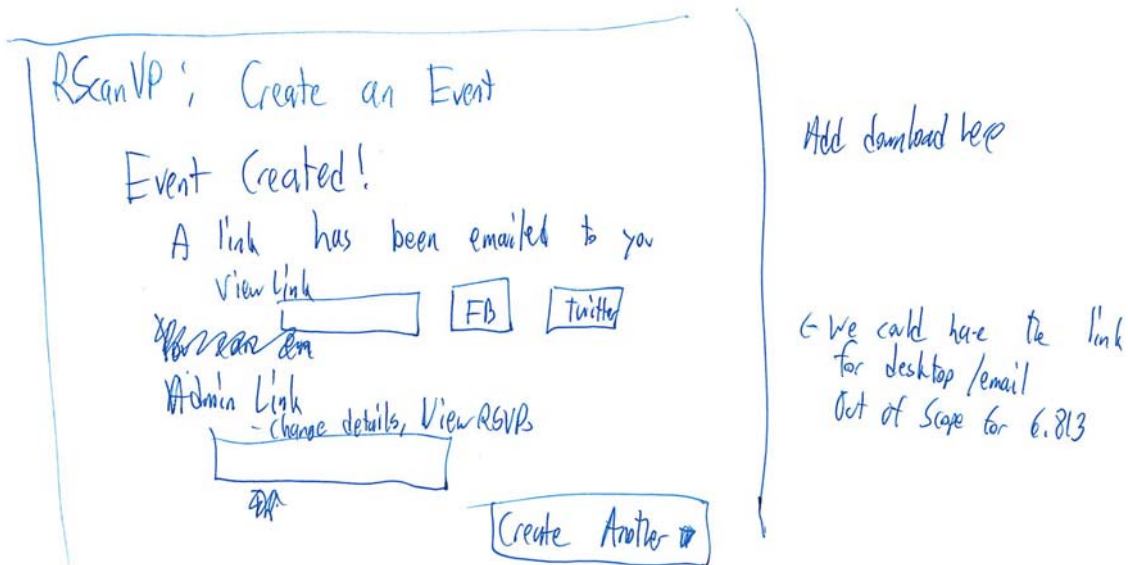 RScanVP: Create an Event
Event Created!
A link has been emailed to you
View Link
FB
Twitter
Admin Link
- Change details, View RSVPs
Create Another
Add download here
← We could have the link
for desktop/email
Out of Scope for 6.813